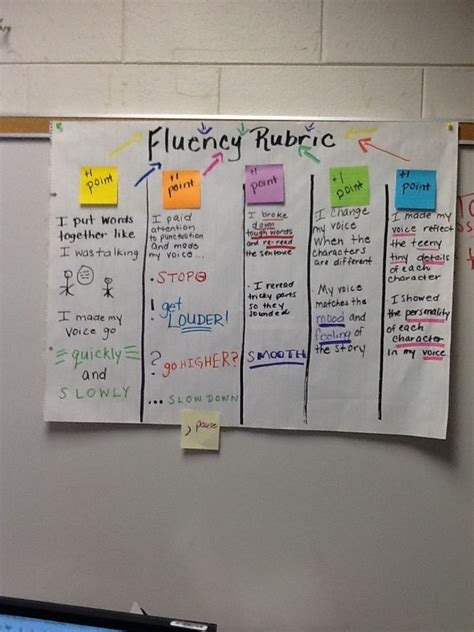 Fluency Rubric
+1
point
I put words
together like
I was talking
I made my
voice go
quickly
and
SLOWLY
+1
point
I paid
attention
to punctuation
and made
my voice...
. STOP
! get
LOUDER!
? go HIGHER?
... SLOW DOWN
, pause
+1
point
I broke
down
tough words
and re-read
the sentence
. I reread
tricky parts
so they
sounded
SMOOTH
+1
point
I change
my voice
when the
characters
are different
. My voice
matches the
mood and
feeling of
the story
+1
point
I made my
voice reflect
the teeny
tiny details
of each
character
I showed
the personality
of each
character
in my voice